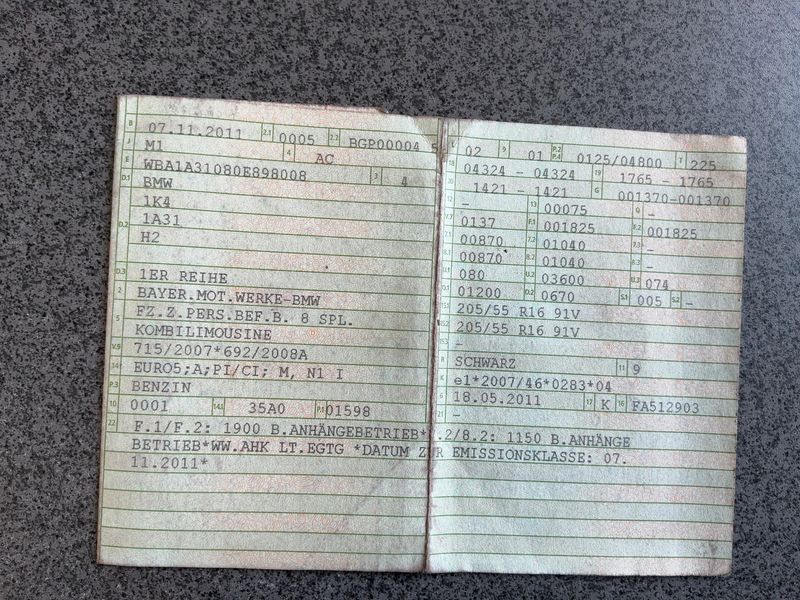 B 07.11.2011 2.1 0005 2.2 BGP00004 5
J M1 4 AC
E WBA1A31080E898008 3 4
D.1 BMW
1K4
D.2 1A31
H2
D.3 1ER REIHE
2 BAYER.MOT.WERKE-BMW
5 FZ.Z.PERS.BEF.B. 8 SPL.
KOMBILIMOUSINE
V.9 715/2007*692/2008A
14 EURO5;A;PI/CI; M, N1 I
P.3 BENZIN
10 0001 14.1 35A0 P.1 01598
22 F.1/F.2: 1900 B.ANHÄNGEBETRIEB* .2/8.2: 1150 B.ANHÄNGE
BETRIEB*WW.AHK LT.EGTG *DATUM ZUR EMISSIONSKLASSE: 07.
11.2011*
L 02 9 01 P.2 P.4 0125/04800 T 225
18 04324 - 04324 19 1765 - 1765
20 1421 - 1421 G 001370-001370
12 - 13 00075 Q -
V.7 0137 F.1 001825 F.2 001825
7.1 00870 7.2 01040 7.3 -
8.1 00870 8.2 01040 8.3 -
U.1 080 U.2 03600 U.3 074
O.1 01200 O.2 0670 S.1 005 S.2 -
15.1 205/55 R16 91V
15.2 205/55 R16 91V
15.3 -
R SCHWARZ 11 9
K e1*2007/46*0283*04
6 18.05.2011 17 K 16 FA512903
21 -